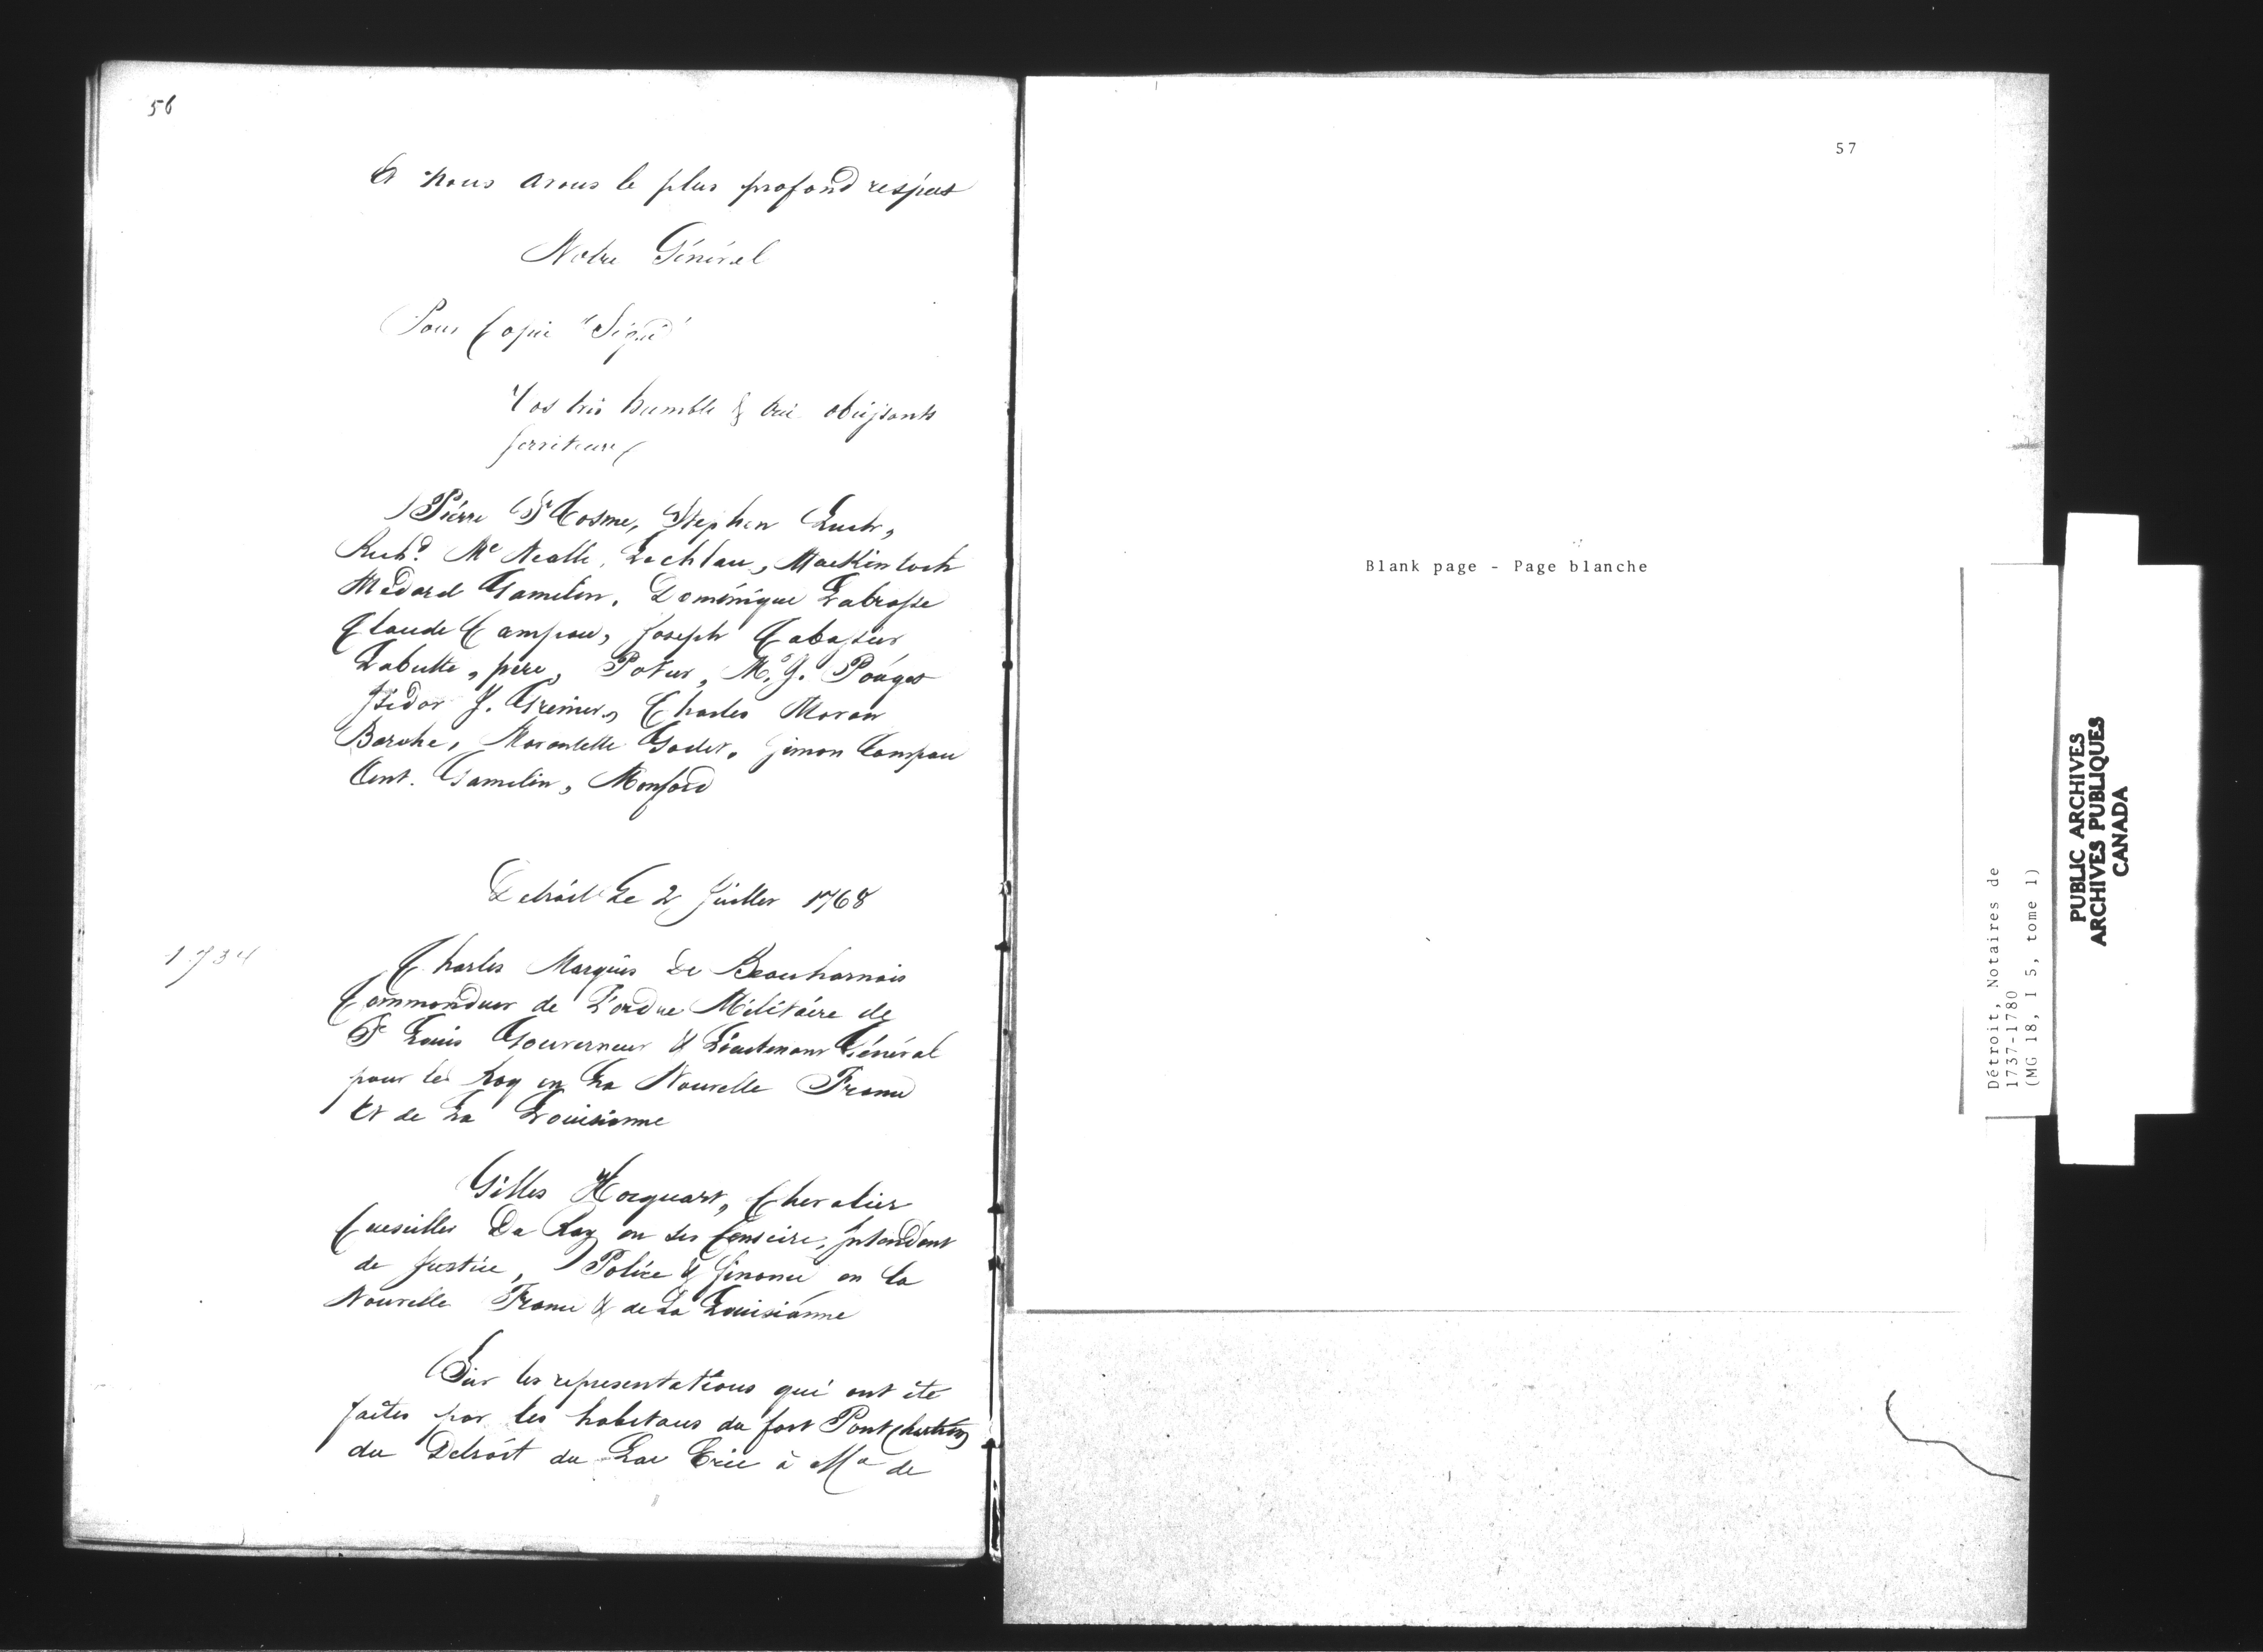 56
Et nous avons le plus profond respect
Notre Général
Pour Copie "Signé"
Vos très humble & trè obéissants
serviteurs
Pierre St Cosme, Stephen Luch,
Richd Mc Nealle, Lechlau, MacKintosh
Médard Gamelin, Dominique Labrosse
Claude Campau, Joseph Cabassier
Labutte, père, Potur, M. J. Pouget
Isidor J. Greinier, Charles Moran
Baroke, Morantette Godet, Simon Campau
Ent. Gamelin, Monford
Detroit Le 2 Juillet 1768
1734
Charles Marquis De Beauharnois
Commandeur de L'ordre Militaire de
St Louis Gouverneur & Lieutenant Général
pour le Roy en La Nouvelle France
Et de La Louisianne
Gilles Hocquart, Chevalier
Conseiller Du Roy en ses Conseire, Intendant
de Justice, Police & finance en la
Nouvelle France & de La Louisianne
Sur les representations qui ont été
faites par les habitans du fort Pontchartrin
du Detroit du Lac Erié à Mr de
57
Blank page - Page blanche
Détroit, Notaires de
1737-1780
(MG 18, I 5, tome 1)
PUBLIC ARCHIVES
ARCHIVES PUBLIQUES
CANADA